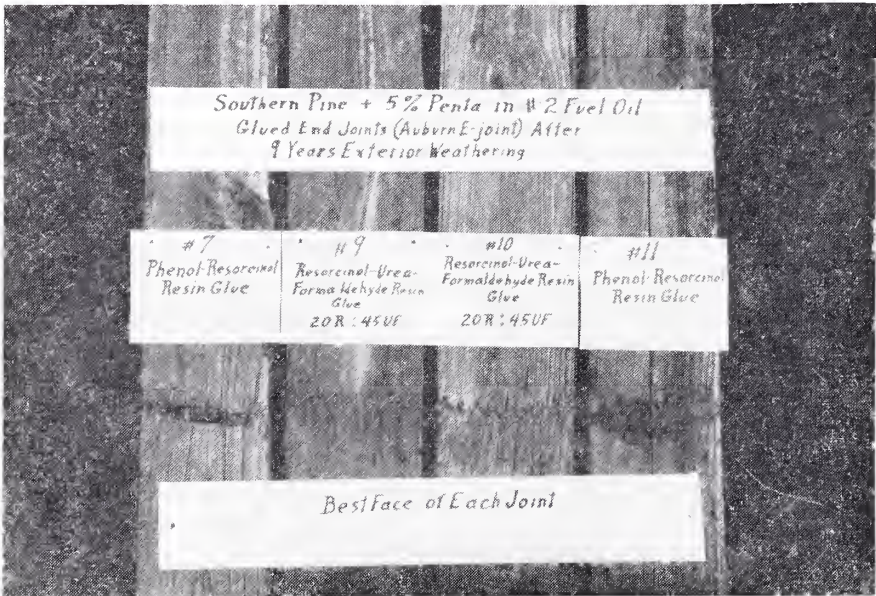 Southern Pine + 5% Penta in #2 Fuel Oil
Glued End Joints (Auburn E-joint) After
9 Years Exterior Weathering
#7
Phenol-Resorcinol
Resin Glue
#9
Resorcinol-Urea-
Formaldehyde Resin
Glue
20R:45UF
#10
Resorcinol-Urea-
Formaldehyde Resin
Glue
20R:45UF
#11
Phenol-Resorcinol
Resin Glue
Best Face of Each Joint